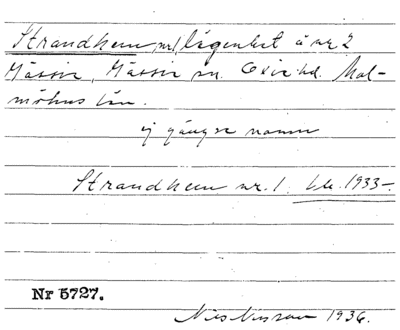 Strandhem, nr 1, lägenhet å nr 2
Hässie, Hässie sn. Oxie hd. Mal-
möhus län.
ej gängse namn
Strandhem nr. 1. 1933-.
Nr 5727.
Nils Nilsson 1936.